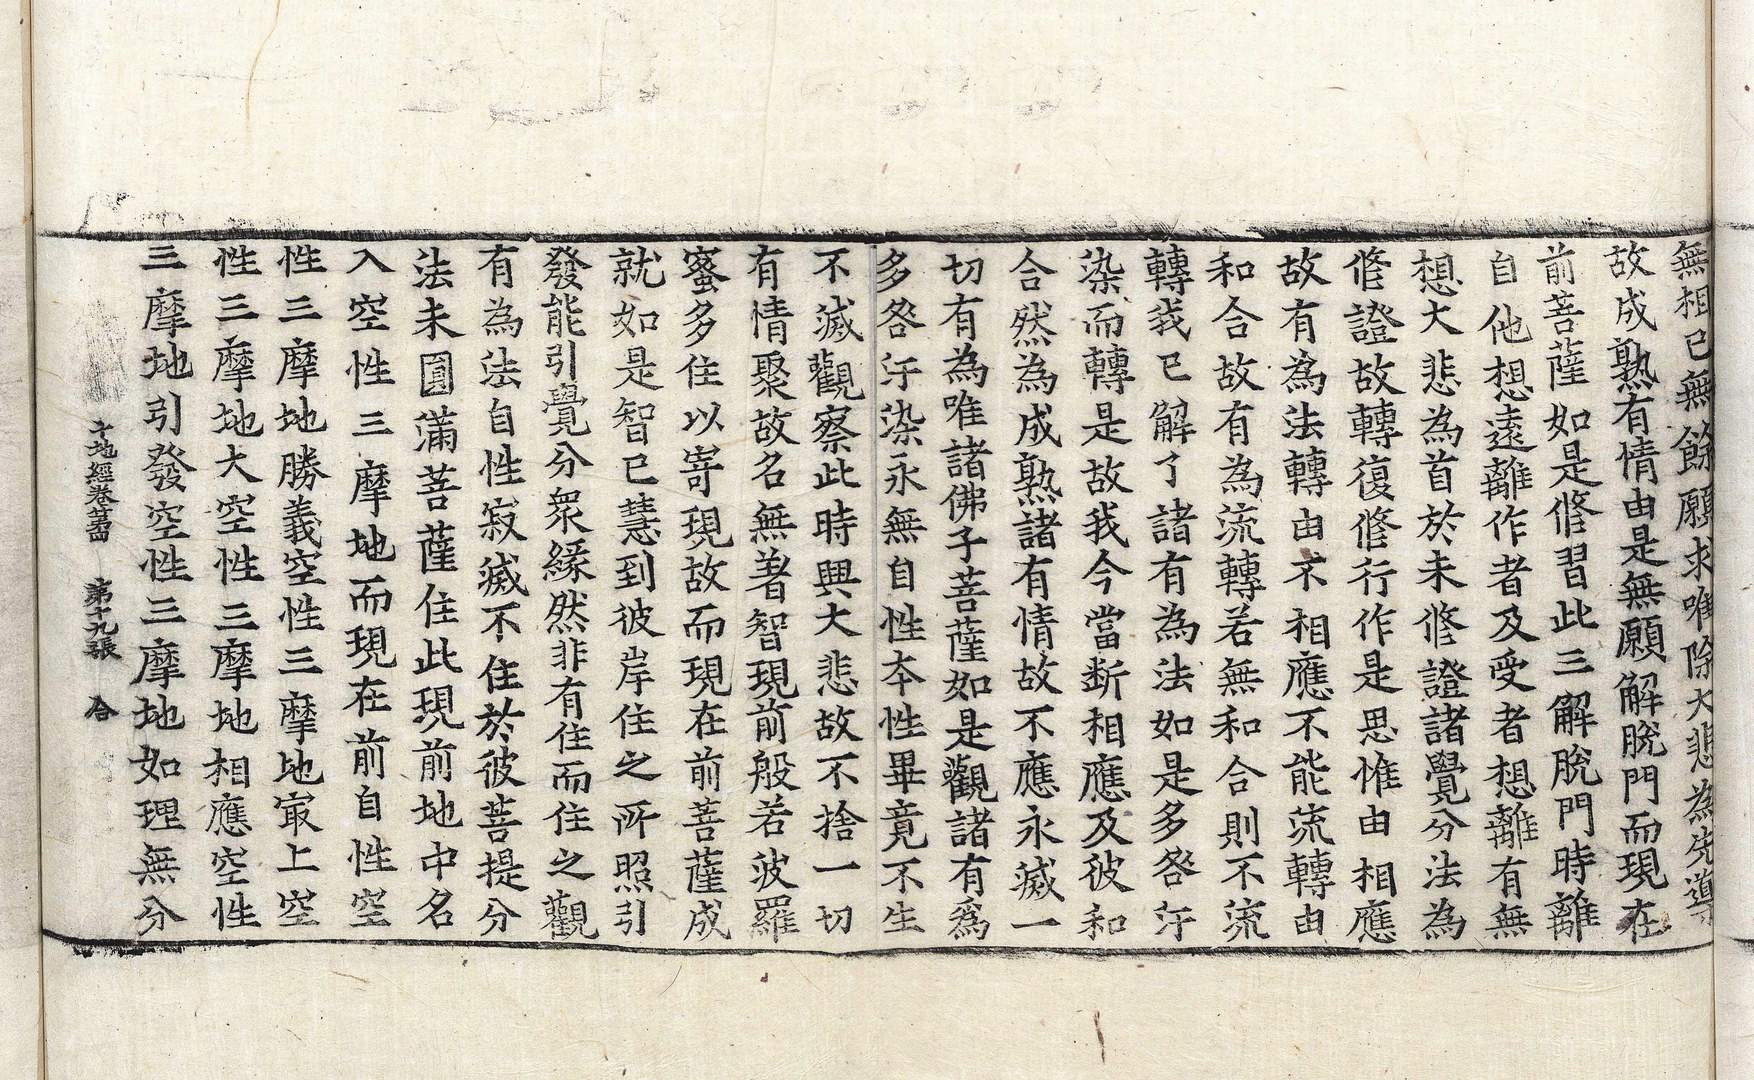 無相已無餘願求唯除大悲為先導
故成熟有情由是無願解脫門而現在
前菩薩如是修習此三解脫門時離
自他想遠離作者及受者想離有無
想大悲為首於未修證諸覺分法為
修證故轉復修行作是思惟由相應
故有為法轉由不相應不能流轉由
和合故有為流轉若無和合則不流
轉我已解了諸有為法如是多咎汙
染而轉是故我今當斷相應及彼和
合然為成熟諸有情故不應永滅一
切有為唯諸佛子菩薩如是觀諸有為
多咎汙染永無自性本性畢竟不生
不滅觀察此時興大悲故不捨一切
有情聚故名無著智現前般若波羅
蜜多住以寄現故而現在前菩薩成
就如是智已慧到彼岸住之所照引
發能引覺分眾緣然非有住而住之觀
有為法自性寂滅不住於彼菩提分
法未圓滿菩薩住此現前地中名
入空性三摩地而現在前自性空
性三摩地勝義空性三摩地㝡上空
性三摩地大空性三摩地相應空性
三摩地引發空性三摩地如理無分
十地經卷第四 第十九張 合